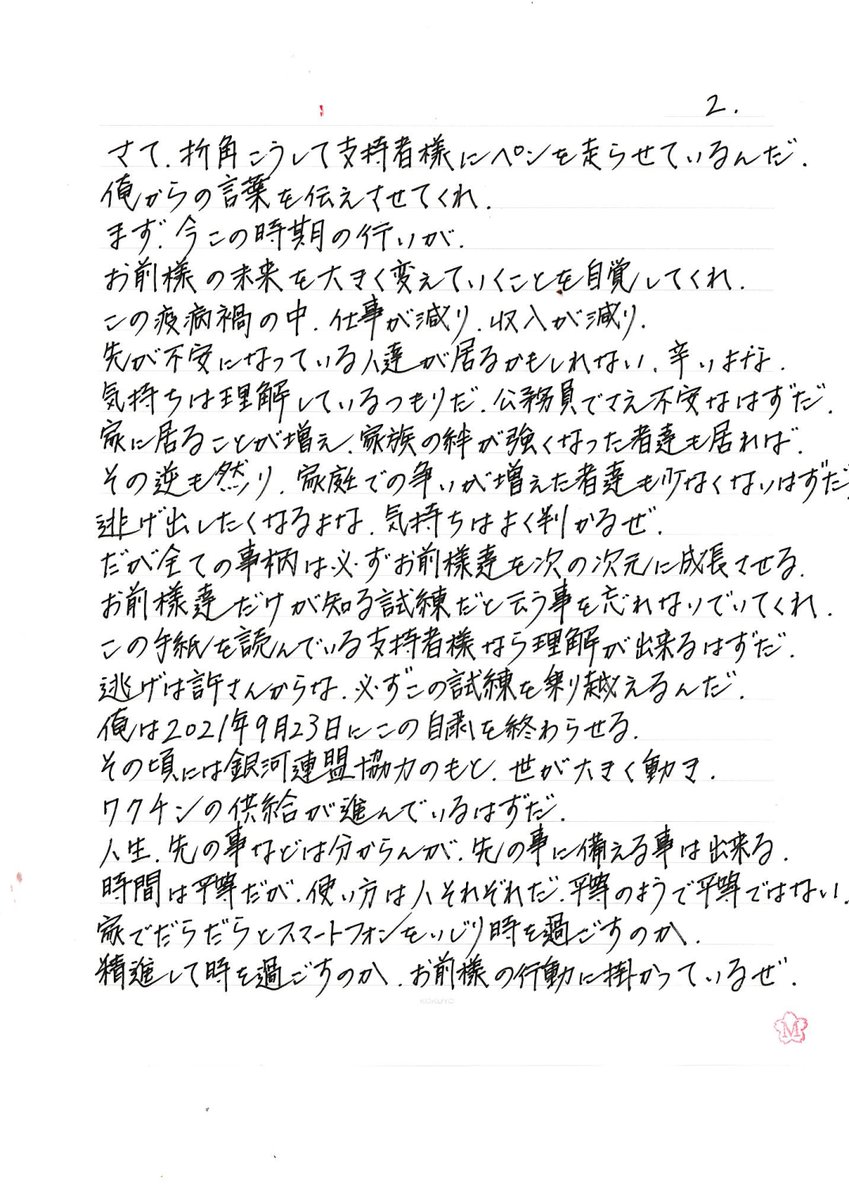 2.
さて、折角こうして支持者様にペンを走らせているんだ.
俺からの言葉を伝えさせてくれ.
まず、今この時期の行いが、
お前様の未来を大きく変えていくことを自覚してくれ.
この疫病禍の中、仕事が減り、収入が減り、
先が不安になっている人達が居るかもしれない、辛いよな.
気持ちは理解しているつもりだ、公務員でさえ不安なはずだ.
家に居ることが増え、家族の絆が強くなった者達も居れば、
その逆も然り、家庭での争いが増えた者達も少なくないはずだ
逃げ出したくなるよな、気持ちはよく判かるぜ.
だが全ての事柄は必ずお前様達を次の次元に成長させる.
お前様達だけが知る試練だと云う事を忘れないでいてくれ.
この手紙を読んでいる支持者様なら理解が出来るはずだ.
逃げは許さんからな、必ずこの試練を乗り越えるんだ.
俺は2021年9月23日にこの自粛を終わらせる.
その頃には銀河連盟協力のもと、世が大きく動き、
ワクチンの供給が進んでいるはずだ.
人生、先の事などは分からんが、先の事に備える事は出来る.
時間は平等だが、使い方は人それぞれだ、平等のようで平等ではない.
家でだらだらとスマートフォンをいじり時を過ごすのか、
精進して時を過ごすのか、お前様の行動に掛かっているぜ.
KOKUYO
M